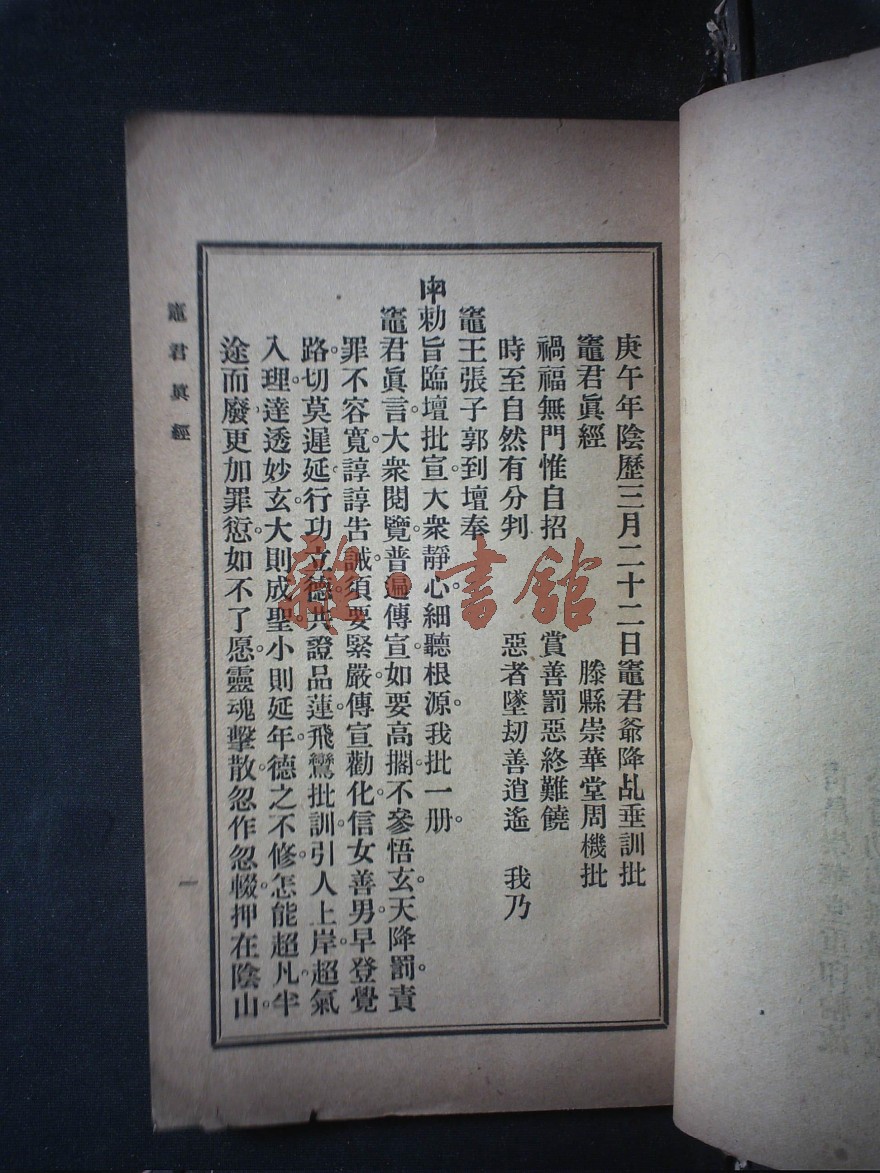 庚午年陰歷三月二十二日竈君爺降乩垂訓批
竈君眞經　滕縣崇華堂周機批
禍福無門惟自招　賞善罰惡終難饒
時至自然有分判　惡者墜刼善逍遙　我乃
竈王張子郭到壇奉
勅旨臨壇批宣大衆靜心細聽根源。我批一册。
竈君眞言大衆閱覽。普遍傳宣。如要高擱不參悟玄。天降罰責。
罪不容寬諄諄告誡須要緊嚴。傳宣勸化。信女善男。早登覺
路。切莫遲延。行功立德。共證品蓮。飛鸞批訓引人上岸。超氣
入理。達透妙玄。大則成聖。小則延年。德之不修。怎能超凡。半
途而廢。更加罪愆。如不了愿。靈魂擊散。忽作忽輟。押在陰山。
竈君眞經
一
雜·書館